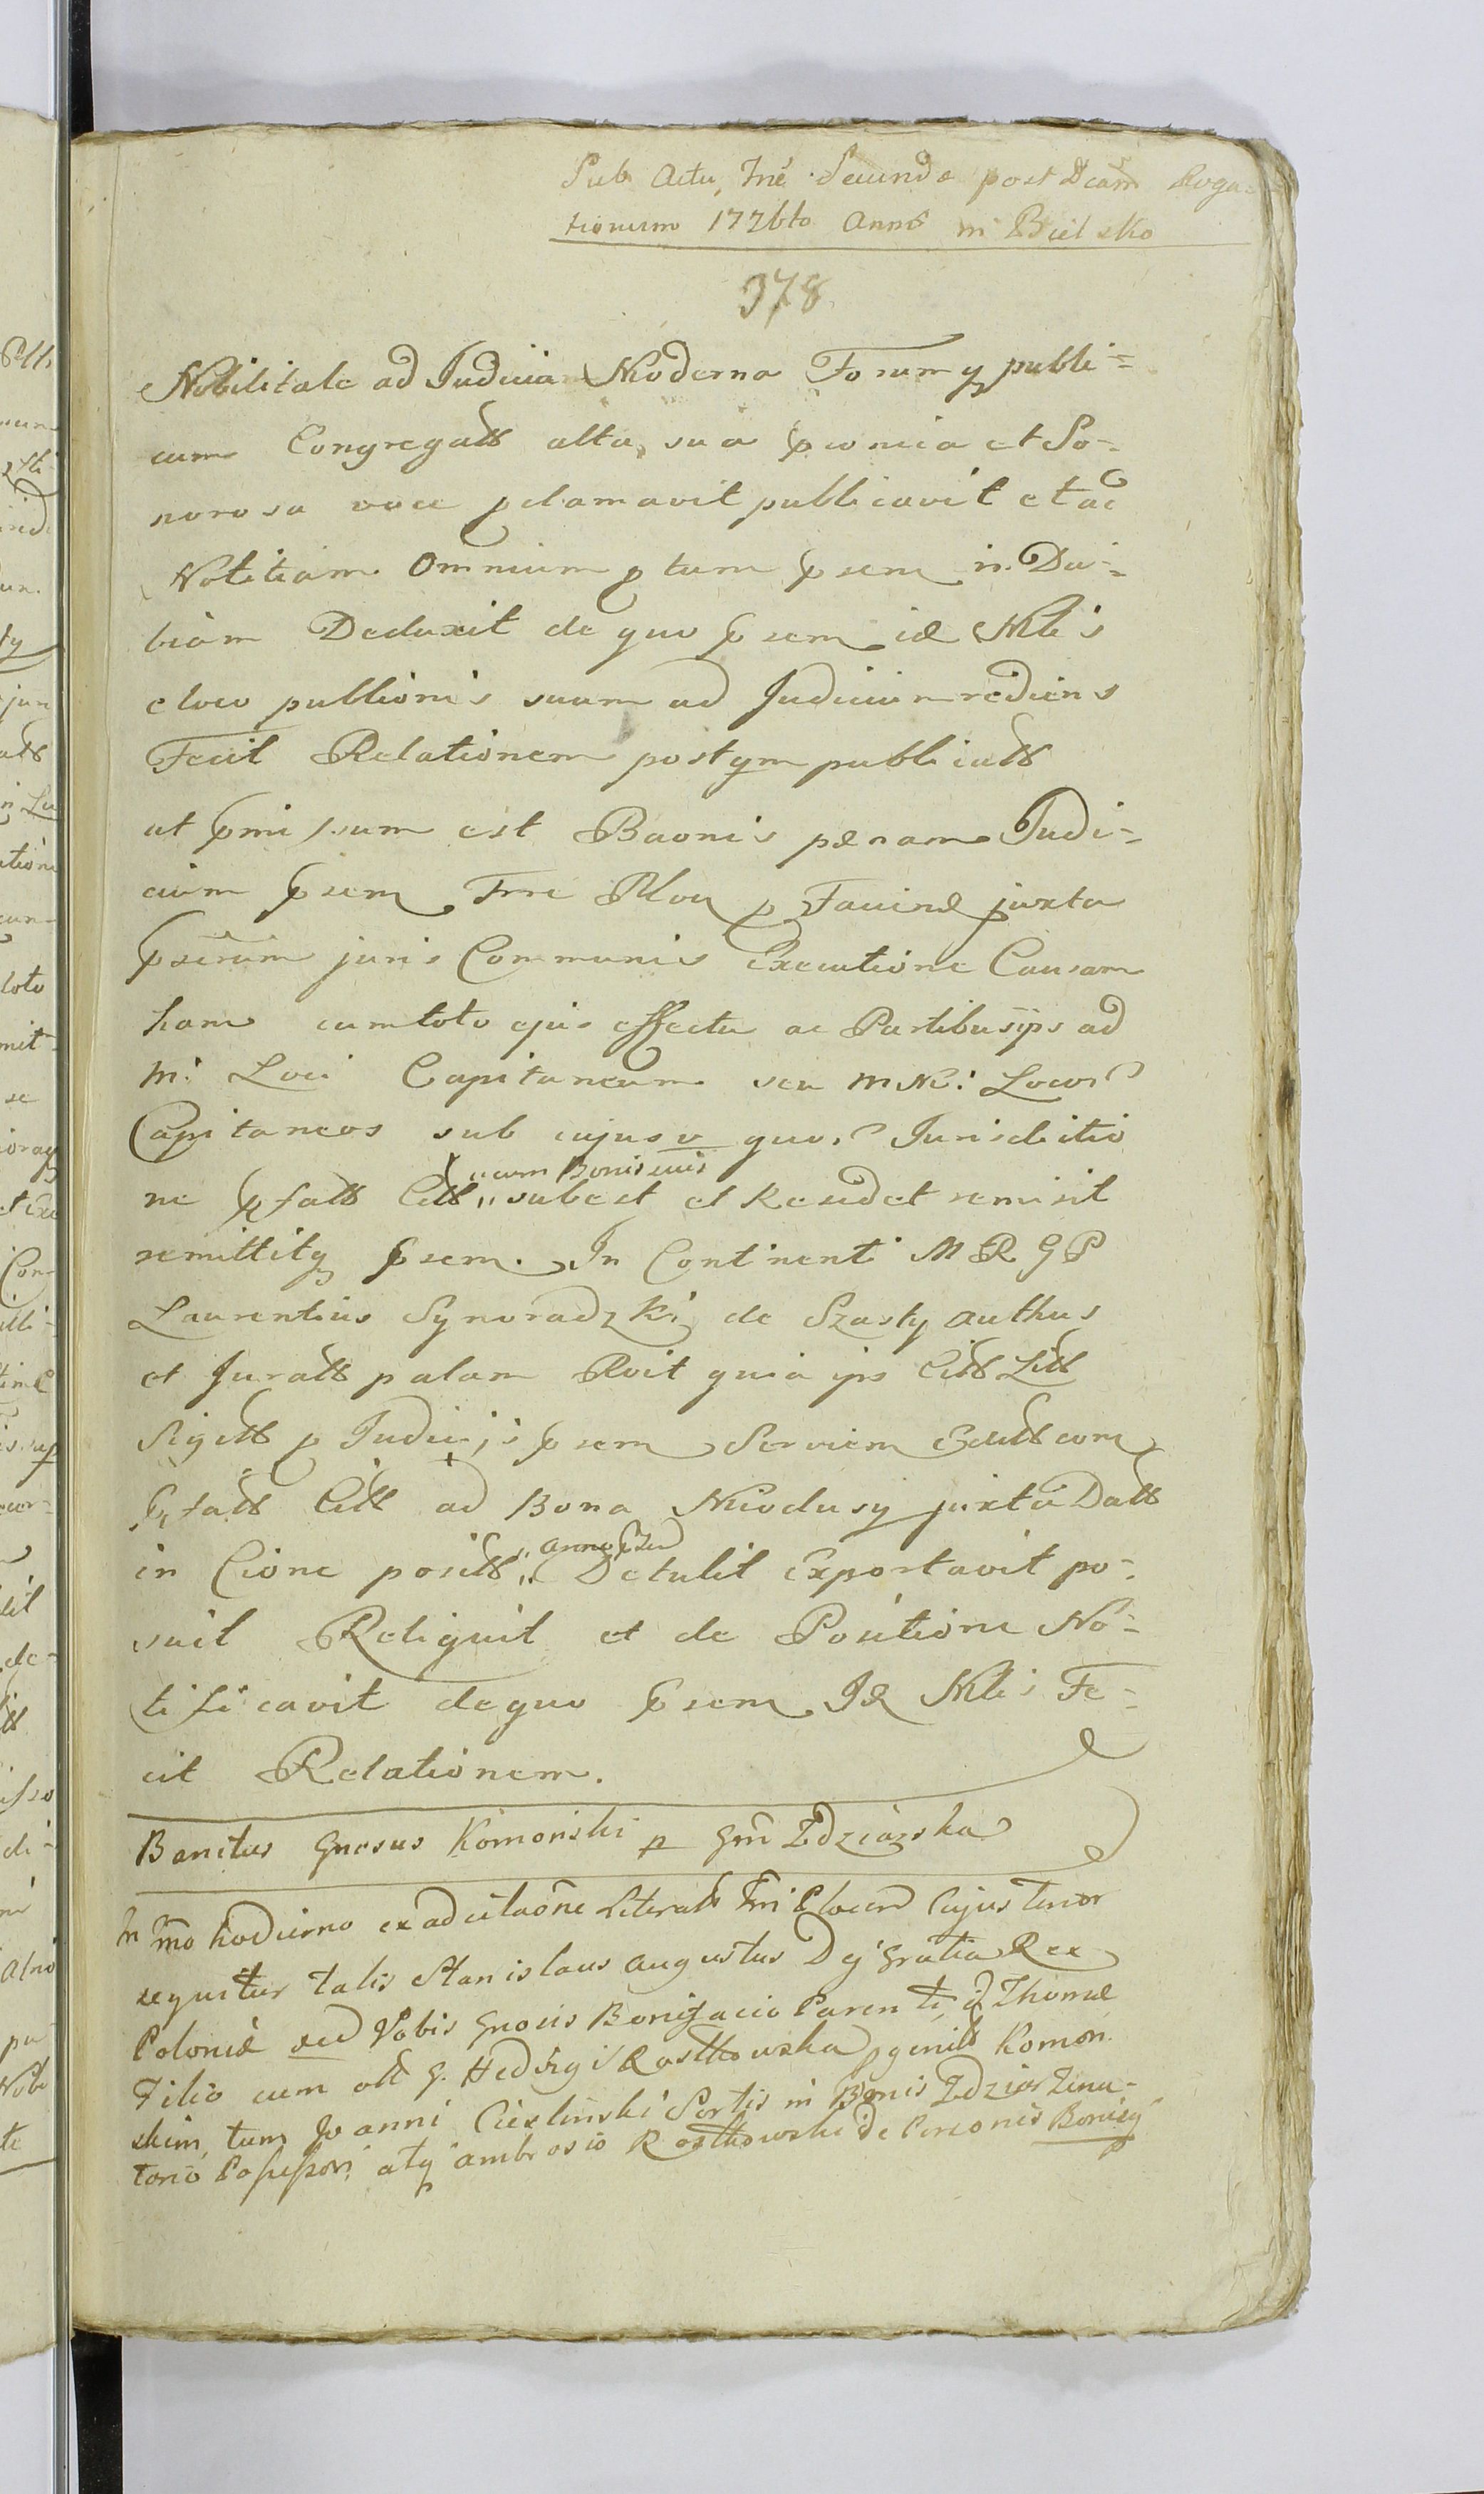 Sub Actu, Trie Secunda post Dcam Roga=
tionum 1776to Anno in Bielsko
378
Nobilitate ad Judicia Moderna Forumq publi=
cum Congregatt alta, sua pconica et So-
norosa voce pclamavit publicavit et ac
Notitiam Omnium ptum psem in Du-
biam Deduxit de quo psem id Nblis
e loco publionis suum ad Judicium rediens
Fecit Relationem postqm publicatt
ut pmissum est Baonis pænam Judi-
cium psem Trre Plou p Faciend juxta
pserum juris Communis Executione Causam
hanc cum toto ejus effectu ac Partibus ips ad
M: Loci Capitaneum seu M M: Locor
Capitaneos sub cujus v quor Jurisdictio
ne pfatt Citt,, cum Bonis suis
subest et Resudet remisit
remittitq psem. In Continenti M R G P
Laurentius Synoradzki de Szasty authus
et Juratt palam Rvit quia ips Citt Litt
Sigitt p Judicijs psem Serviem Editt com
pfatt Citt ad Bona Niodusy juxta Datt
in Cione positt,, anno
Detulit Exportavit po-
suit Reliquit et de Positione No-
tificavit de quo psem Id Nblis Fe-
cit Relationem.
Banitus Gnosus Komoński p Gm Zdziarska
In Tmo hodierno ex ad citaone Literali Tri Plocen Cujus tenor
sequitur talis Stanislaus Augustus Dej Gratia Rex
Poloniæ Vobis Gnosis Bonifacio Parenti, Thomæ
Filio cum olt G. Hedvigi Rostkowska pgenitt Komon
skim, tum Joanni Cieslinski Sortis in Bonis Zdziar Tenu-
torio Possessori atq Ambrosio Rostkowski de Personis Bonisq